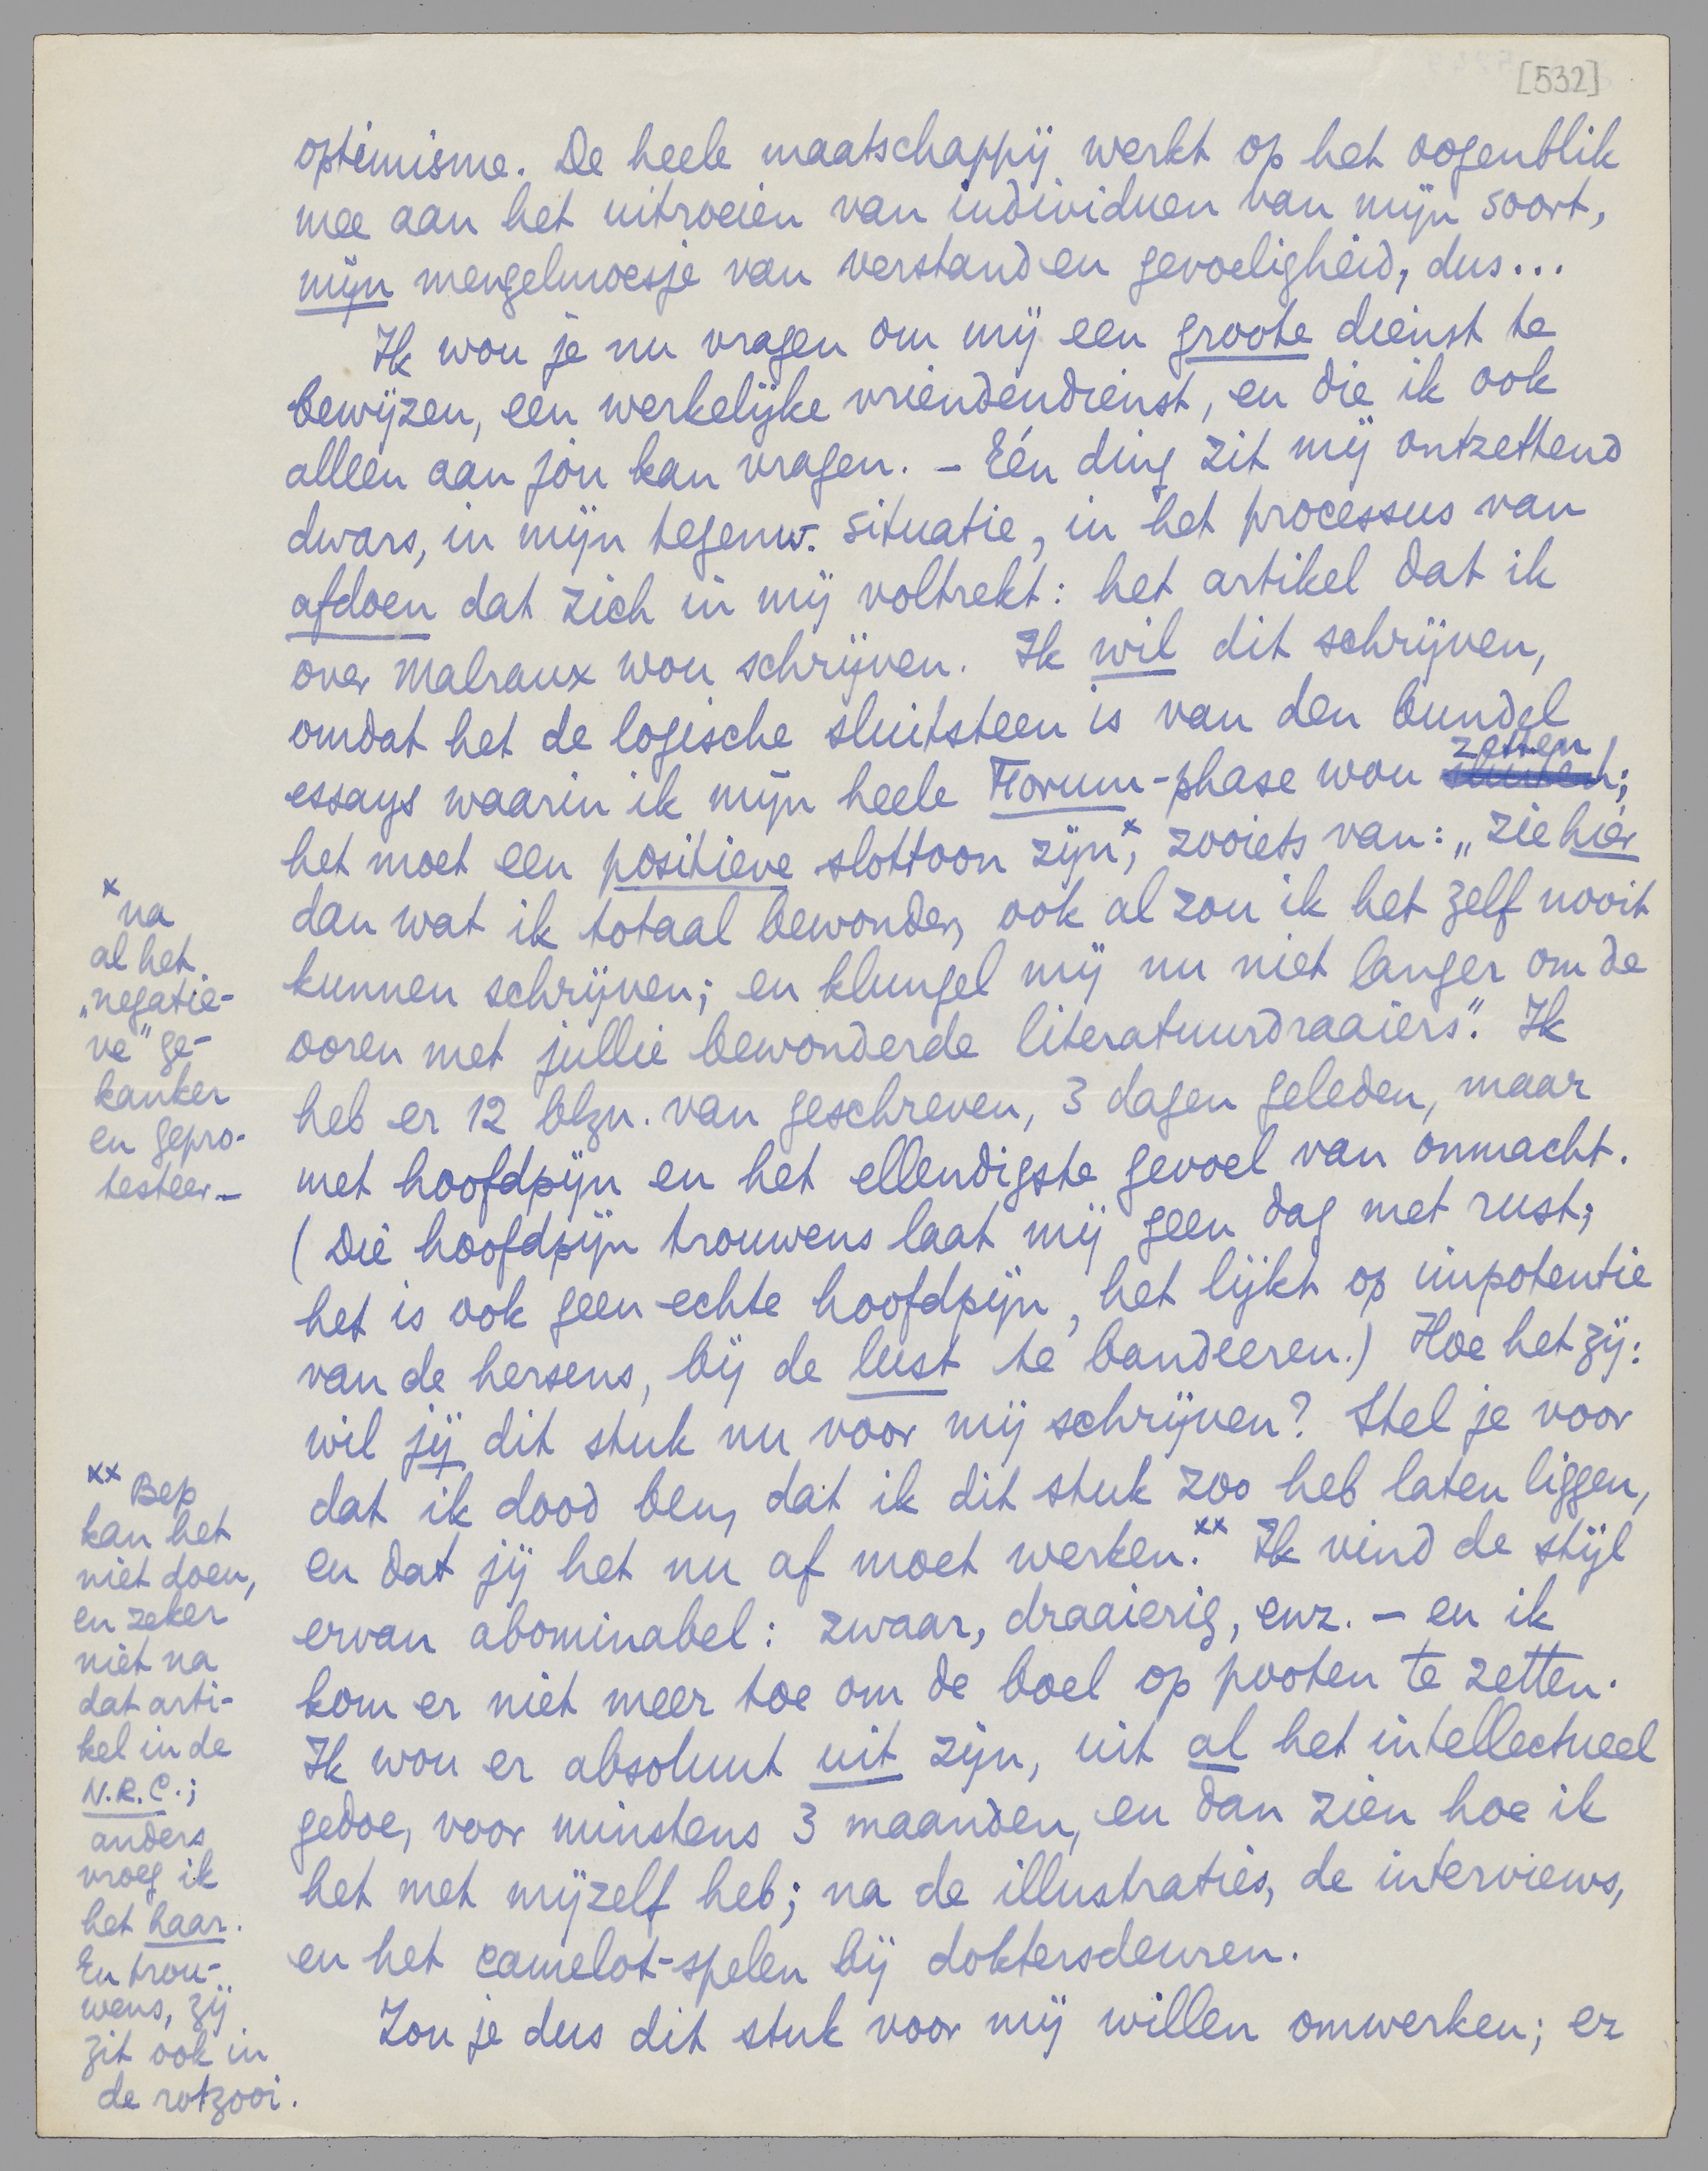 [532]
optimisme. De heele maatschappij werkt op het oogenblik
mee aan het uitroeien van individuen van mijn soort,
mijn mengelmoesje van verstand en gevoeligheid, dus...
Ik wou je nu vragen om mij een groote dienst te
bewijzen, een werkelijke vriendendienst, en die ik ook
alleen aan jou kan vragen. – Eén ding zit mij ontzettend
dwars, in mijn tegenw. situatie, in het processus van
afdoen dat zich in mij voltrekt: het artikel dat ik
over Malraux wou schrijven. Ik wil dit schrijven,
omdat het de logische sluitsteen is van den bundel
essays waarin ik mijn heele Forum-phase wou zetten;
het moet een positieve slottoon zijn×, zooiets van: „zie hier
dan wat ik totaal bewonder, ook al zou ik het zelf nooit
kunnen schrijven; en klungel mij nu niet langer om de
ooren met jullie bewonderde literatuurdraaiers". Ik
heb er 12 blzn. van geschreven, 3 dagen geleden, maar
met hoofdpijn en het ellendigste gevoel van onmacht.
(Die hoofdpijn trouwens laat mij geen dag met rust;
het is ook geen echte hoofdpijn, het lijkt op impotentie
van de hersens, bij de lust te bandeeren.) Hoe het zij:
wil jij dit stuk nu voor mij schrijven? Stel je voor
dat ik dood ben, dat ik dit stuk zoo heb laten liggen,
en dat jij het nu af moet werken.×× Ik vind de stijl
ervan abominabel: zwaar, draaierig, enz. – en ik
kom er niet meer toe om de boel op pooten te zetten.
Ik wou er absoluut uit zijn, uit al het intellectueel
gedoe, voor minstens 3 maanden, en dan zien hoe ik
het met mijzelf heb; na de illustraties, de interviews,
en het camelot-spelen bij doktersdeuren.
Zou je dus dit stuk voor mij willen omwerken; er
× na
al het
„negatie-
ve" ge-
kanker
en gepro-
testeer –
×× Bep
kan het
niet doen,
en zeker
niet na
dat arti-
kel in de
N.R.C.;
anders
vroeg ik
het haar.
En trou-
wens, zij
zit ook in
de rotzooi.